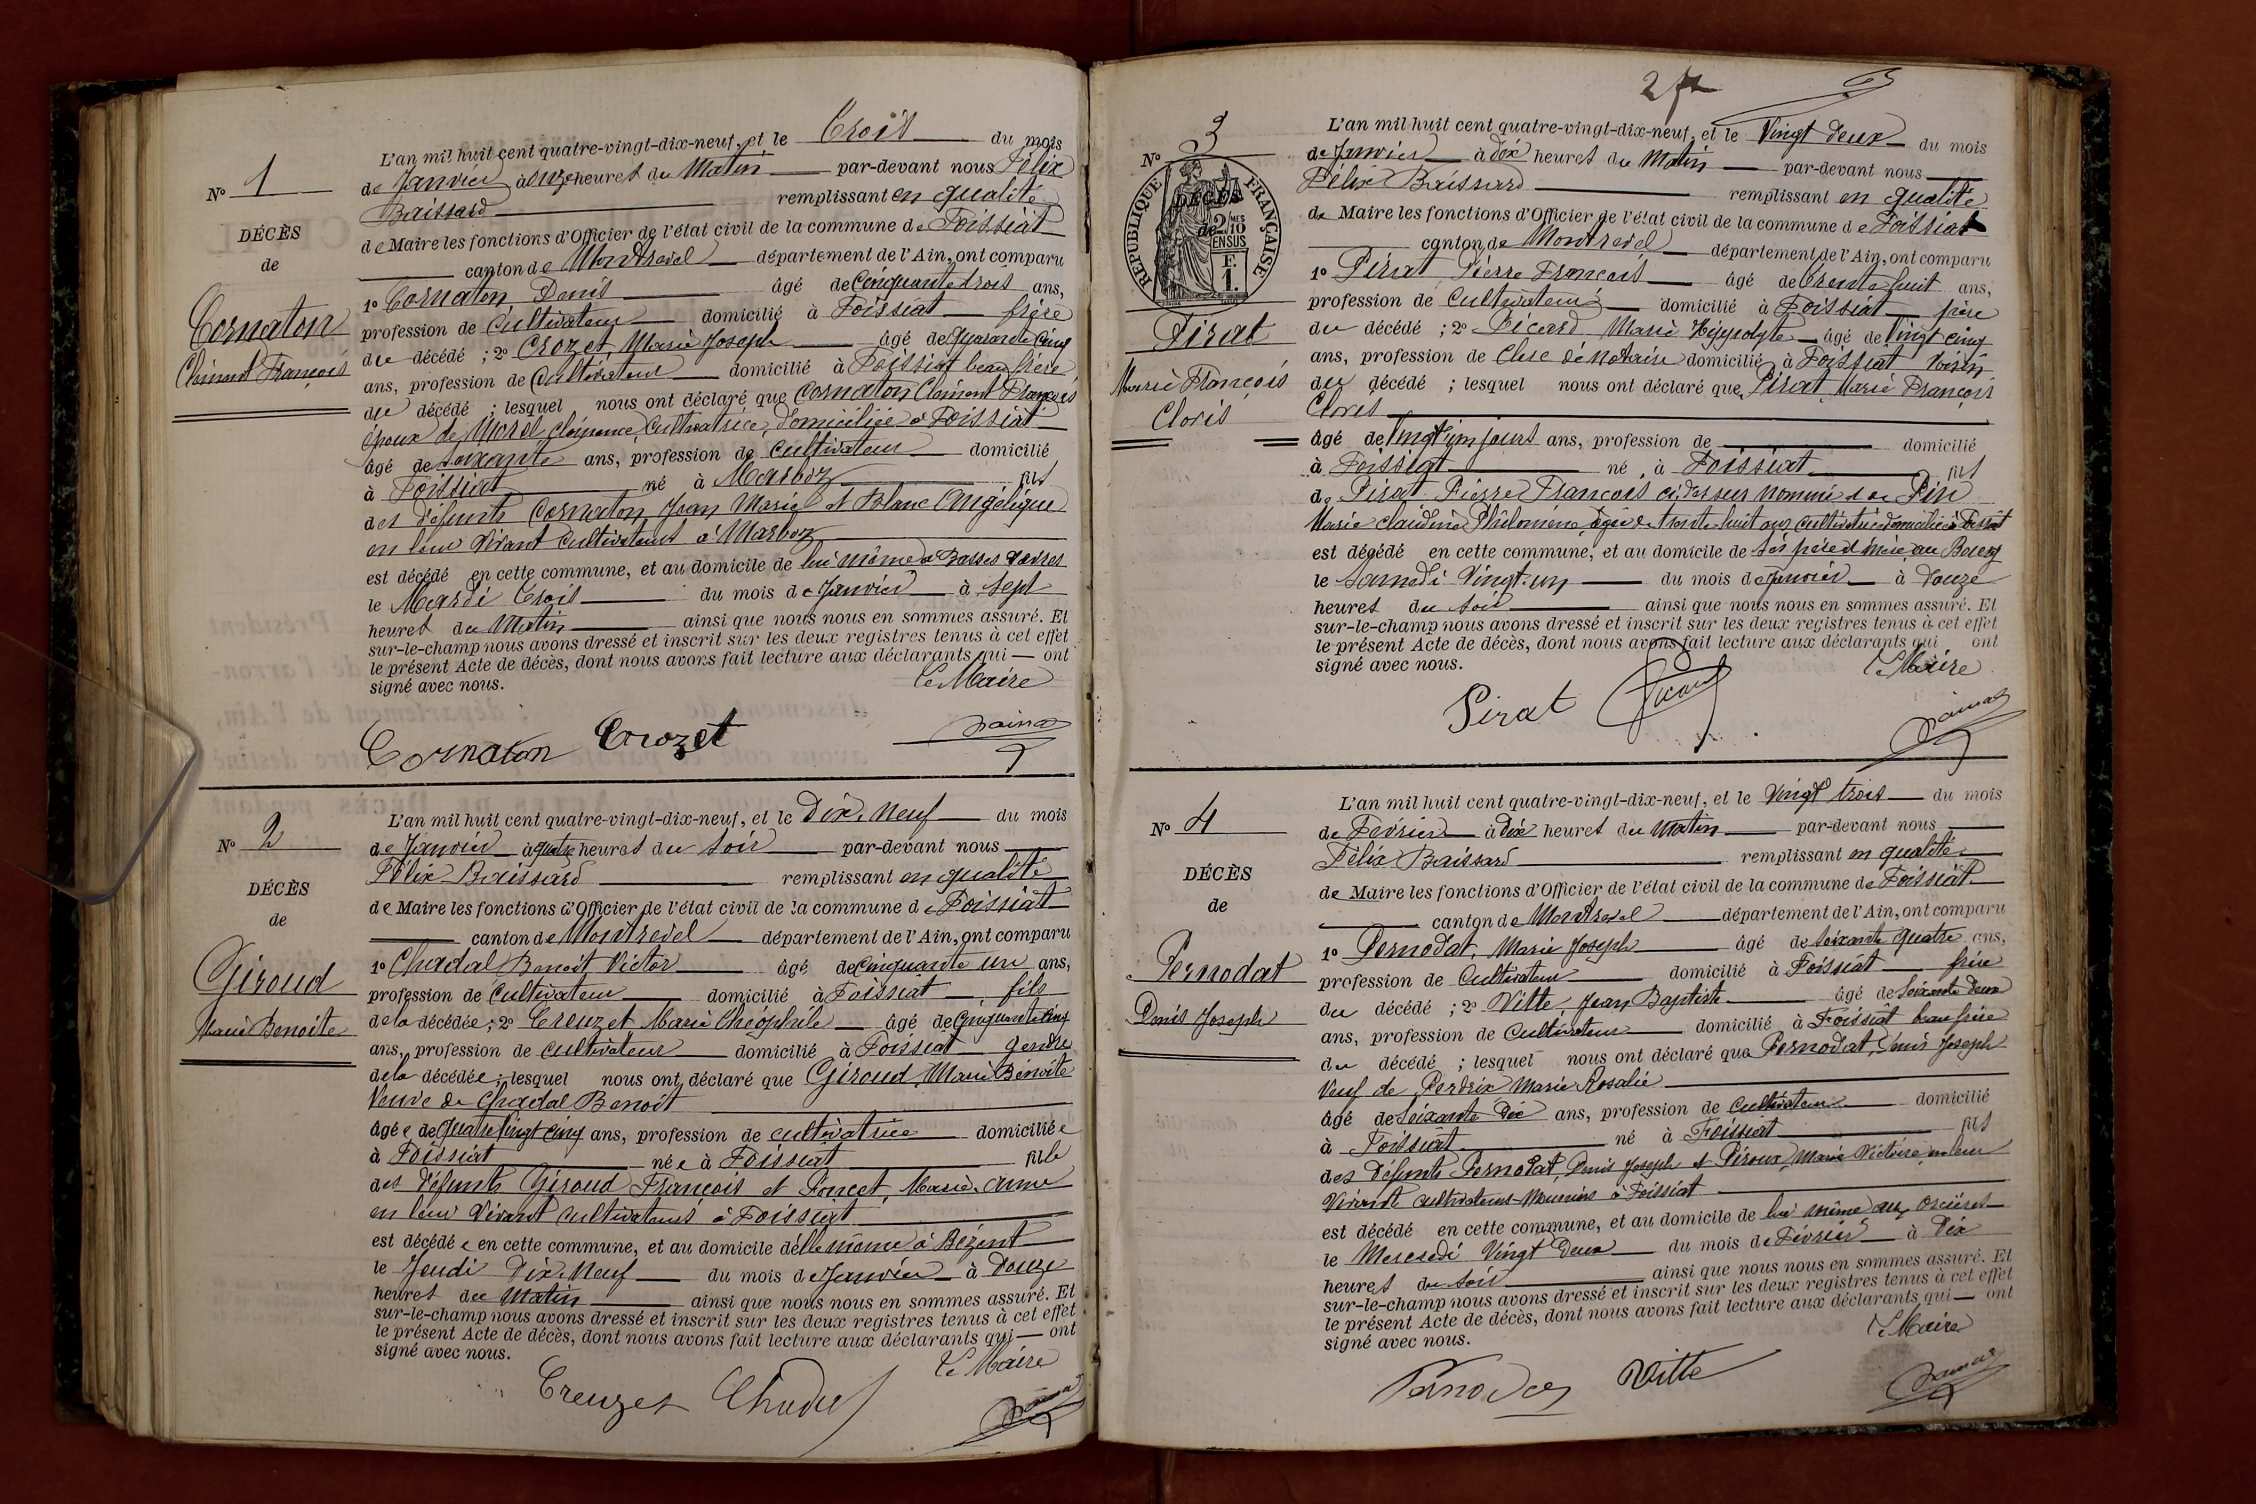 N° 1
DÉCÈS
de
Cornaton
Clément François
L'an mil huit cent quatre-vingt-dix-neuf, et le Trois du mois
de Janvier à onze heures du Matin par-devant nous Félix
Baissard remplissant en qualité
de Maire les fonctions d'Officier de l'état civil de la commune de Foissiat
canton de Montrevel département de l'Ain, ont comparu
1° Cornaton Denis âgé de Cinquante trois ans,
profession de Cultivateur domicilié à Foissiat frère
du décédé ; 2° Crozet Marie Joseph âgé de Quarante cinq
ans, profession de Cultivateur domicilié à Foissiat beau frère
du décédé ; lesquel nous ont déclaré que Cornaton Clément François
époux de Morel Cultivatrice, domiciliée à Foissiat
âgé de soixante ans, profession de cultivateur domicilié
à Foissiat né à Marboz fils
des défunts Cornaton Jean Marie et Blanc Angélique
en leur vivant cultivateurs à Marboz
est décédé en cette commune, et au domicile de lui même à
le Mardi Trois du mois de Janvier à sept
heures du Matin ainsi que nous nous en sommes assuré. Et
sur-le-champ nous avons dressé et inscrit sur les deux registres tenus à cet effet
le présent Acte de décès, dont nous avons fait lecture aux déclarants qui ont
signé avec nous.
Le Maire
Cornaton Crozet
N° 2
DÉCÈS
de
Giroud
Marie Benoite
L'an mil huit cent quatre-vingt-dix-neuf, et le Dix-Neuf du mois
de Janvier à quatre heures du soir par-devant nous
Félix Baissard remplissant en qualité
de Maire les fonctions d'Officier de l'état civil de la commune de Foissiat
canton de Montrevel département de l'Ain, ont comparu
1° Chadal Benoît Victor âgé de Cinquante un ans,
profession de Cultivateur domicilié à Foissiat fils
de la décédée ; 2° Creuzet Marie Théophile âgé de Cinquante cinq
ans, profession de cultivateur domicilié à Foissiat gendre
de la décédée ; lesquel nous ont déclaré que Giroud Marie Benoite
Veuve de Chadal Benoît
âgée de Quatre Vingt cinq ans, profession de cultivatrice domiciliée
à Foissiat née à Foissiat fille
des défunts Giroud François et Poncet, Marie Anne
en leur vivant cultivateurs à Foissiat
est décédée en cette commune, et au domicile d'elle même à Bézent
le Jeudi Dix-Neuf du mois de Janvier à Douze
heures du Matin ainsi que nous nous en sommes assuré. Et
sur-le-champ nous avons dressé et inscrit sur les deux registres tenus à cet effet
le présent Acte de décès, dont nous avons fait lecture aux déclarants qui ont
signé avec nous.
Le Maire
Creuzet Chadal
N° 3
RÉPUBLIQUE FRANÇAISE
DÉCÈS
de
2/10
EN SUS
F.
1.
Pirat
Marie François
Clovis
L'an mil huit cent quatre-vingt-dix-neuf, et le Vingt deux du mois
de Janvier à dix heures du Matin par-devant nous
Félix Baissard remplissant en qualité
de Maire les fonctions d'Officier de l'état civil de la commune de Foissiat
canton de Montrevel département de l'Ain, ont comparu
1° Pirat Pierre François âgé de trente huit ans,
profession de Cultivateur domicilié à Foissiat père
du décédé ; 2° Picard Marie Hippolyte âgé de Vingt cinq
ans, profession de Clerc de Notaire domicilié à Foissiat Voisin
du décédé ; lesquel nous ont déclaré que Pirat Marie François
Clovis
âgé de Vingt un jours ans, profession de domicilié
à Foissiat né à Foissiat fils
de Pirat Pierre François ci-dessus nommé et de Pin
Marie Claudine Philomène âgée de trente huit ans cultivatrice domiciliée à Foissiat
est décédé en cette commune, et au domicile de ses père et mère au Bourg
le samedi Vingt-un du mois de Janvier à Douze
heures du soir ainsi que nous nous en sommes assuré. Et
sur-le-champ nous avons dressé et inscrit sur les deux registres tenus à cet effet
le présent Acte de décès, dont nous avons fait lecture aux déclarants qui ont
signé avec nous.
Le Maire
Pirat Picard
N° 4
DÉCÈS
de
Pernodat
Denis Joseph
L'an mil huit cent quatre-vingt-dix-neuf, et le Vingt trois du mois
de Février à dix heures du Matin par-devant nous
Félix Baissard remplissant en qualité
de Maire les fonctions d'Officier de l'état civil de la commune de Foissiat
canton de Montrevel département de l'Ain, ont comparu
1° Pernodat, Marie Joseph âgé de soixante quatre ans,
profession de Cultivateur domicilié à Foissiat frère
du décédé ; 2° Vitte, Jean Baptiste âgé de Soixante deux
ans, profession de Cultivateur domicilié à Foissiat beau frère
du décédé ; lesquel nous ont déclaré que Pernodat, Denis Joseph
Veuf de Perdrix Marie Rosalie
âgé de Soixante Dix ans, profession de cultivateur domicilié
à Foissiat né à Foissiat fils
des défunts Pernodat, Denis Joseph et Péroux, Marie Victoire en leur
Vivant cultivateurs Meuniers à Foissiat
est décédé en cette commune, et au domicile de lui même aux
le Mercredi Vingt Deux du mois de Février à Dix
heures du soir ainsi que nous nous en sommes assuré. Et
sur-le-champ nous avons dressé et inscrit sur les deux registres tenus à cet effet
le présent Acte de décès, dont nous avons fait lecture aux déclarants qui ont
signé avec nous.
Le Maire
Pernodat Vitte